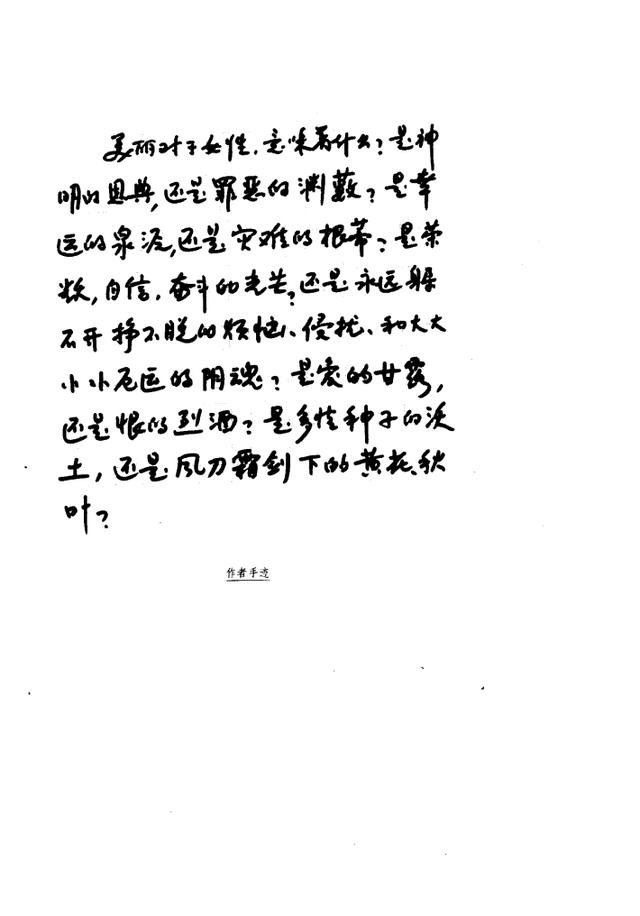 美丽对于女性，意味着什么？是神
明的恩典，还是罪恶的渊薮？是幸
运的泉源，还是灾难的根蒂？是荣
耀，自信，奋斗的光芒？还是永远躲
不开挣不脱的烦恼、侵扰、和大大
小小厄运的阴魂？是爱的甘露，
还是恨的烈酒？是多情种子的沃
土，还是风刀霜剑下的黄花、秋
叶？
作者手迹